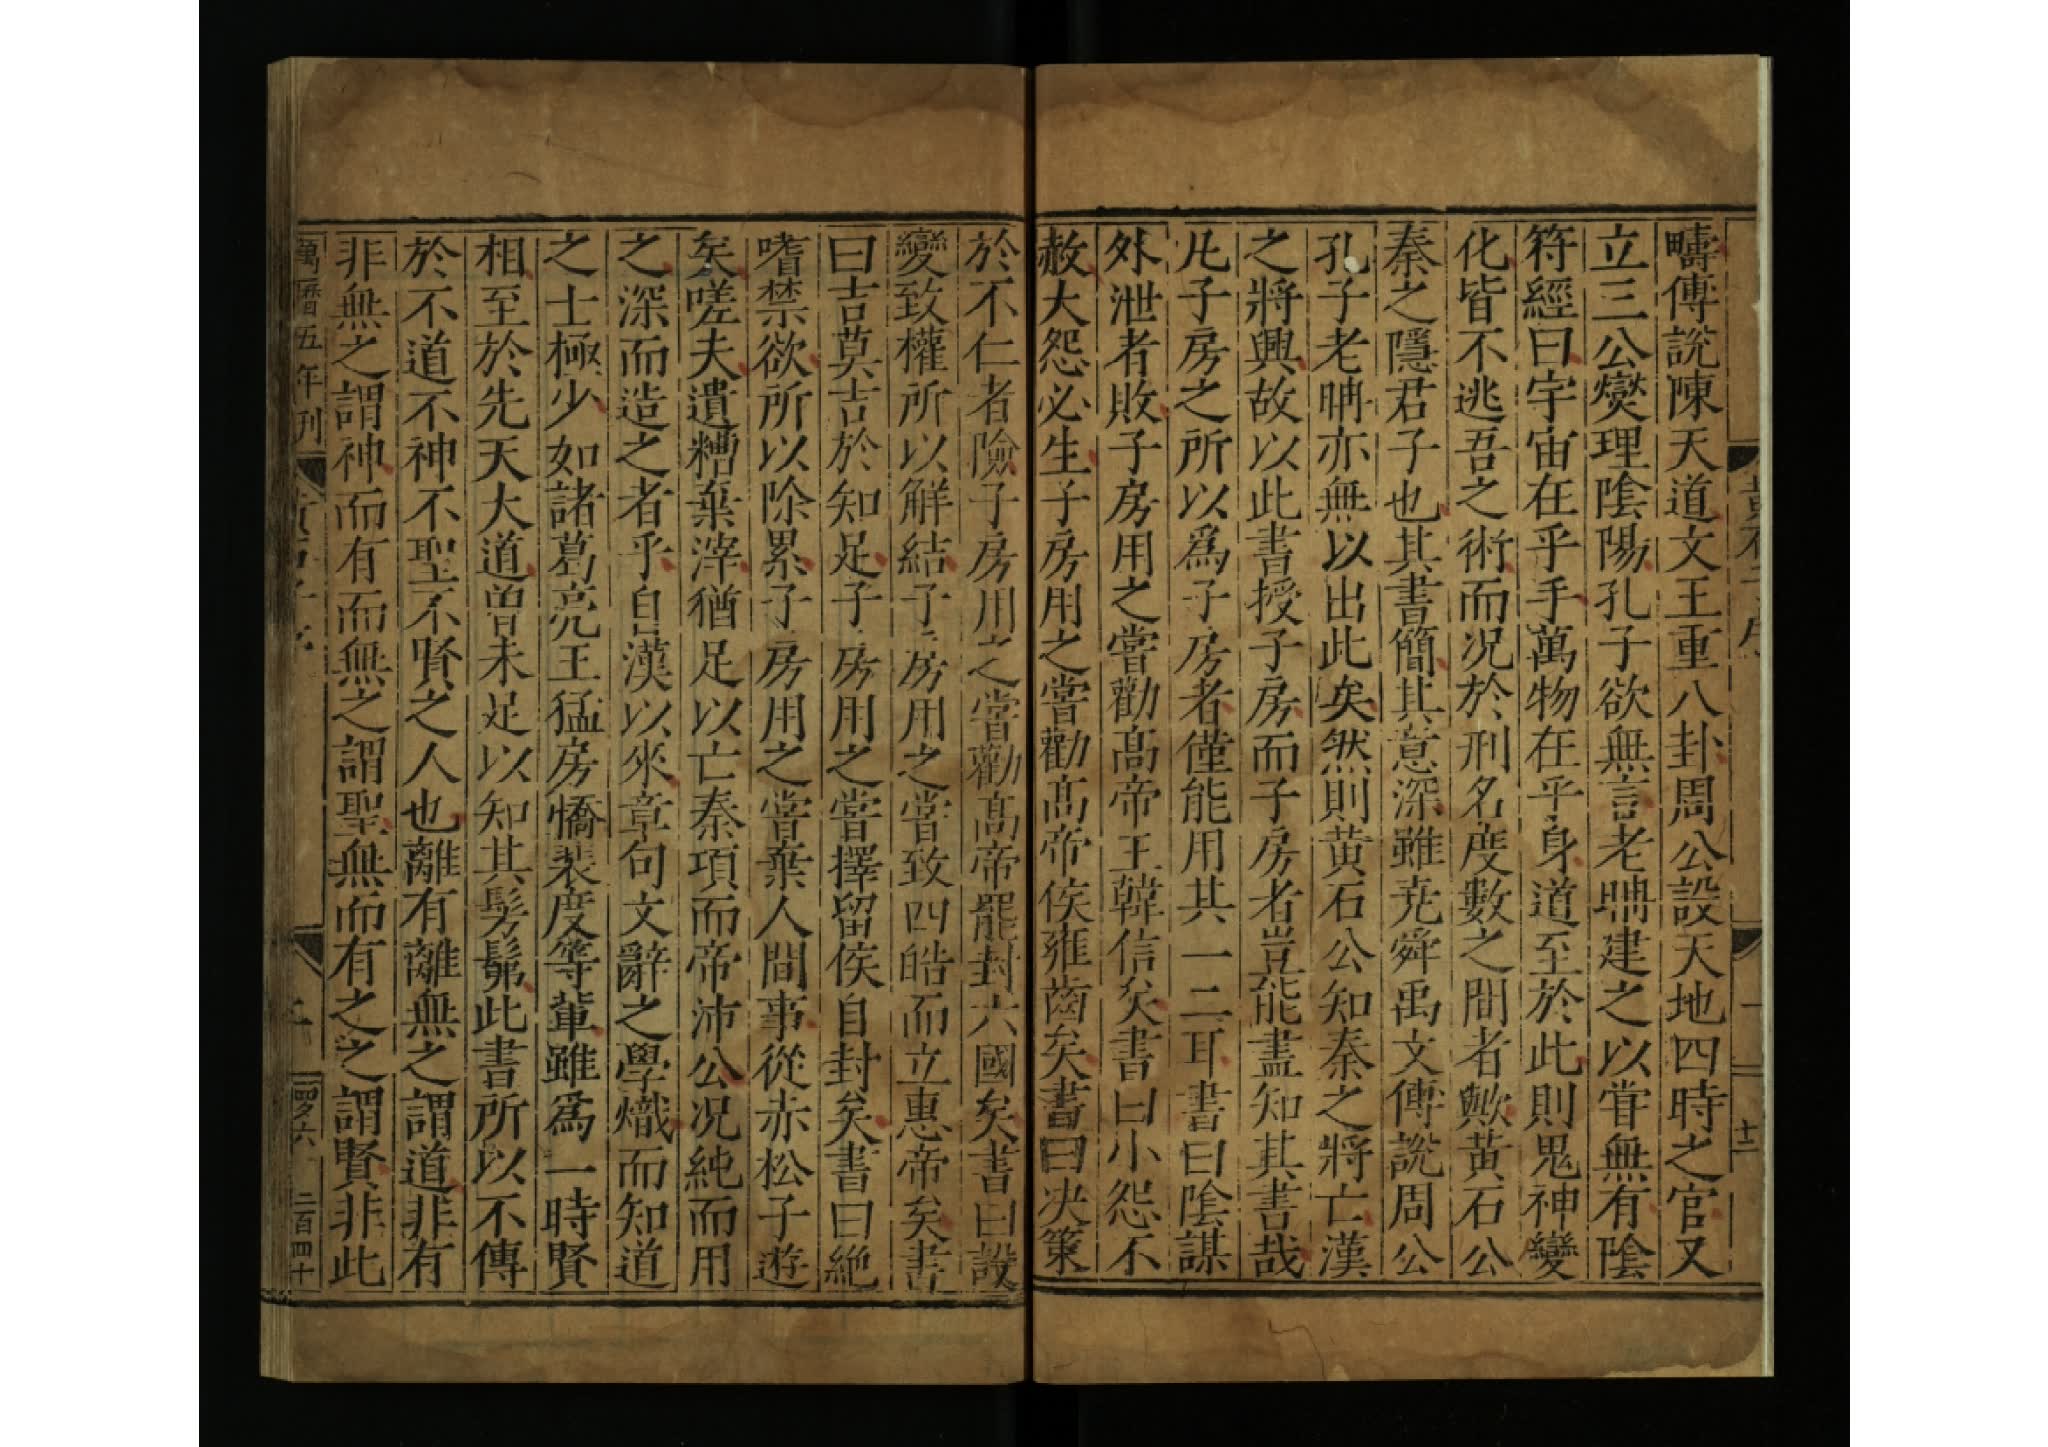 疇傅說陳天道文王重八卦周公設天地四時之官又
立三公爕理陰陽孔子欲無言老聃建之以甞無有陰
符經曰宇宙在乎手萬物在乎身道至於此則鬼神變
化皆不逃吾之術而况於刑名度數之間者歟黃石公
秦之隱君子也其書簡其意深雖尭舜禹文傅說周公
孔子老聃亦無以出此矣然則黃石公知秦之將亡漢
之將興故以此書授子房而子房者豈能盡知其書哉
凡子房之所以爲子房者僅能用其一二耳書曰陰謀
外泄者敗子房用之甞勸髙帝王韓信矣書曰小怨不
赦大怨必生子房用之甞勸髙帝侯雍齒矣書曰决策
於不仁者險子房用之甞勸髙帝罷封六國矣書曰設
變致權所以解結子房用之甞致四皓而立惠帝矣書
曰吉莫吉於知足子房用之甞擇留侯自封矣書曰絶
嗜禁欲所以除累子房用之甞棄人間事從赤松子遊
矣嗟夫遺糟棄滓猶足以亡秦項而帝沛公况純而用
之深而造之者乎自漢以來章句文辭之學熾而知道
之士極少如諸葛亮王猛房憍裴度等軰雖爲一時賢
相至於先天大道曽未足以知其髣髴此書所以不傳
於不道不神不聖不賢之人也離有離無之謂道非有
非無之謂神而有而無之謂聖無而有之之謂賢非此
萬曆五年刋
二百四十